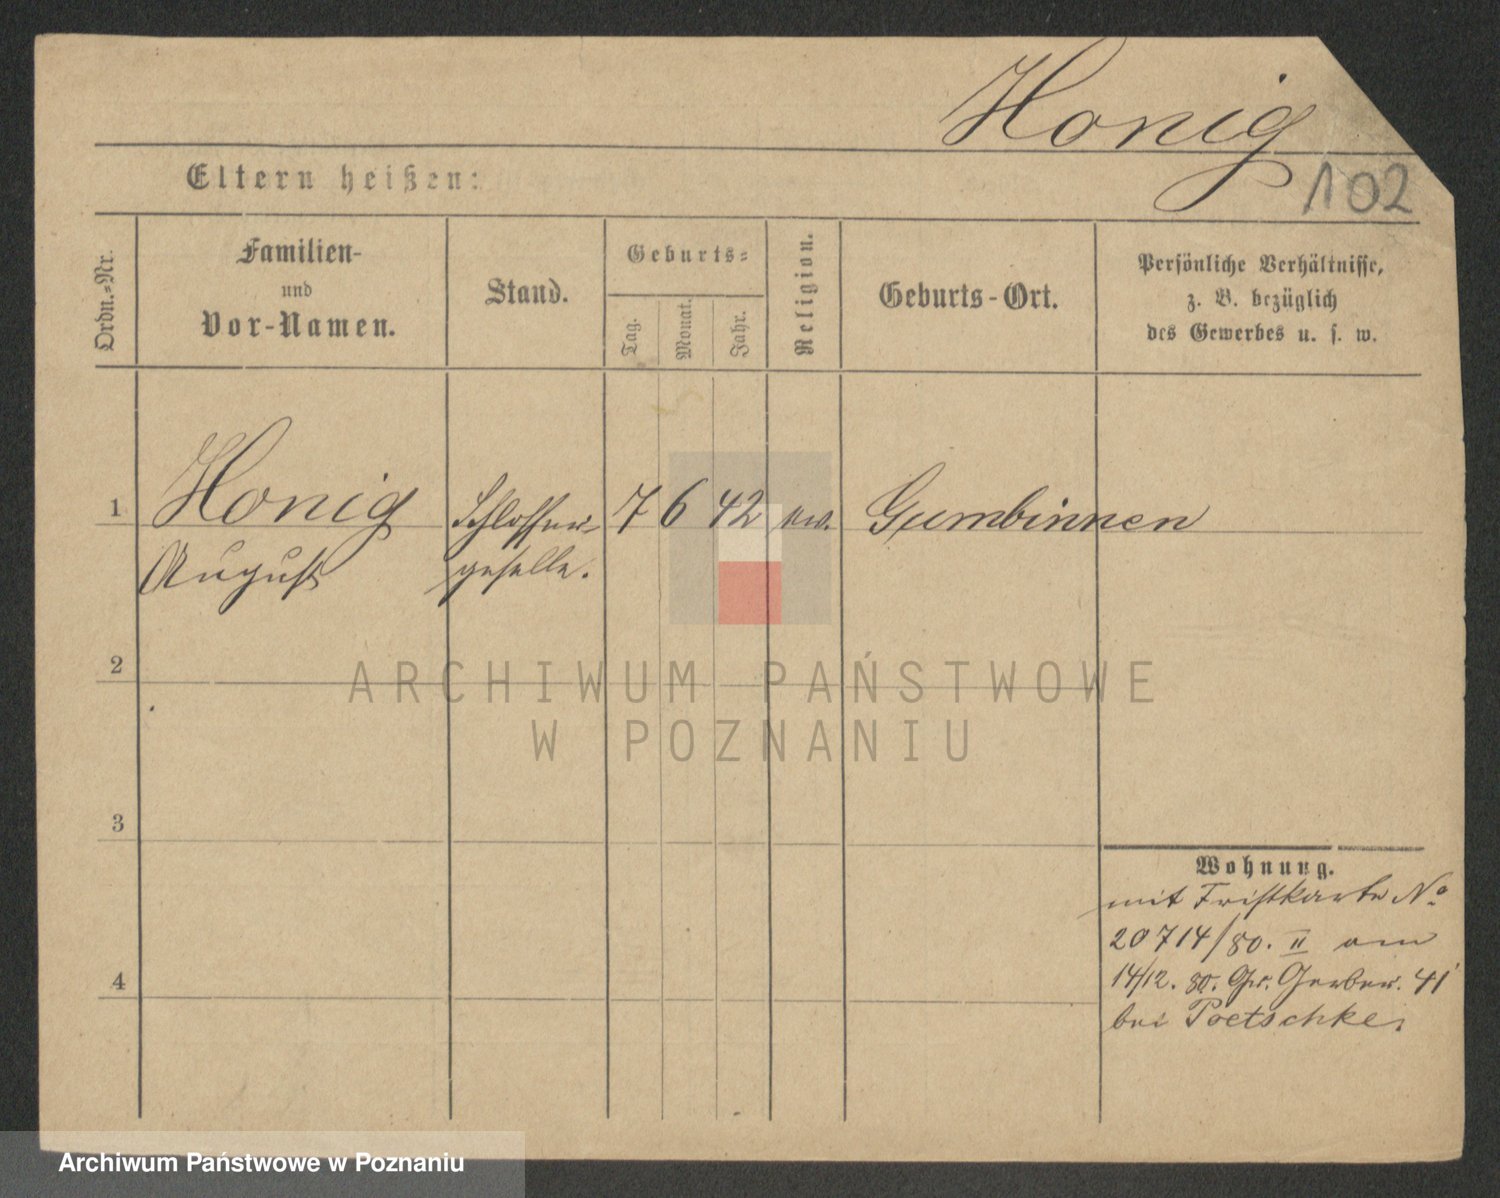 Honig
102
Eltern heißen:
Ordn.-Nr.
Familien-
und
Vor-Namen.
Stand.
Geburts-
Tag.
Monat.
Jahr.
Religion.
Geburts-Ort.
Persönliche Verhältnisse,
z. B. bezüglich
des Gewerbes u. s. w.
1 Honig Schlosser- 7 6 42 ev. Gumbinnen
August geselle.
2
ARCHIWUM PAŃSTWOWE
W POZNANIU
3
Wohnung.
mit Fristkarte No
20714/80. II am
14/12. 80. Gr. Gerber. 41
4
bei Poetschke.
Archiwum Państwowe w Poznaniu